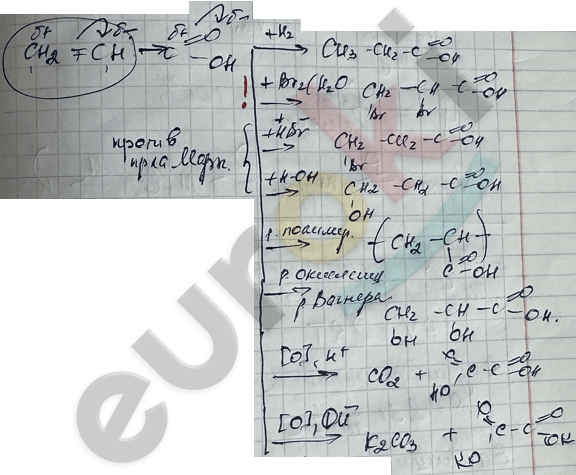 δ+ δ- δ+ δ-
CH2 = CH → C =O -OH
+H2 CH3 - CH2 - C =O -OH
! + Br2(H2O CH2 - CH - C =O -OH
Br Br
против
прав Марк.
+HBr CH2 - CH2 - C =O -OH
Br
+H-OH CH2 - CH2 - C =O -OH
OH
р. полимер. ( CH2 - CH )
C =O -OH
р. окисления
р. Вагнера CH2 - CH - C =O -OH.
OH OH
[O], H+ CO2 + O= HO C - C =O -OH
[O], OH- K2CO3 + O= KO C - C =O -OK
euroki